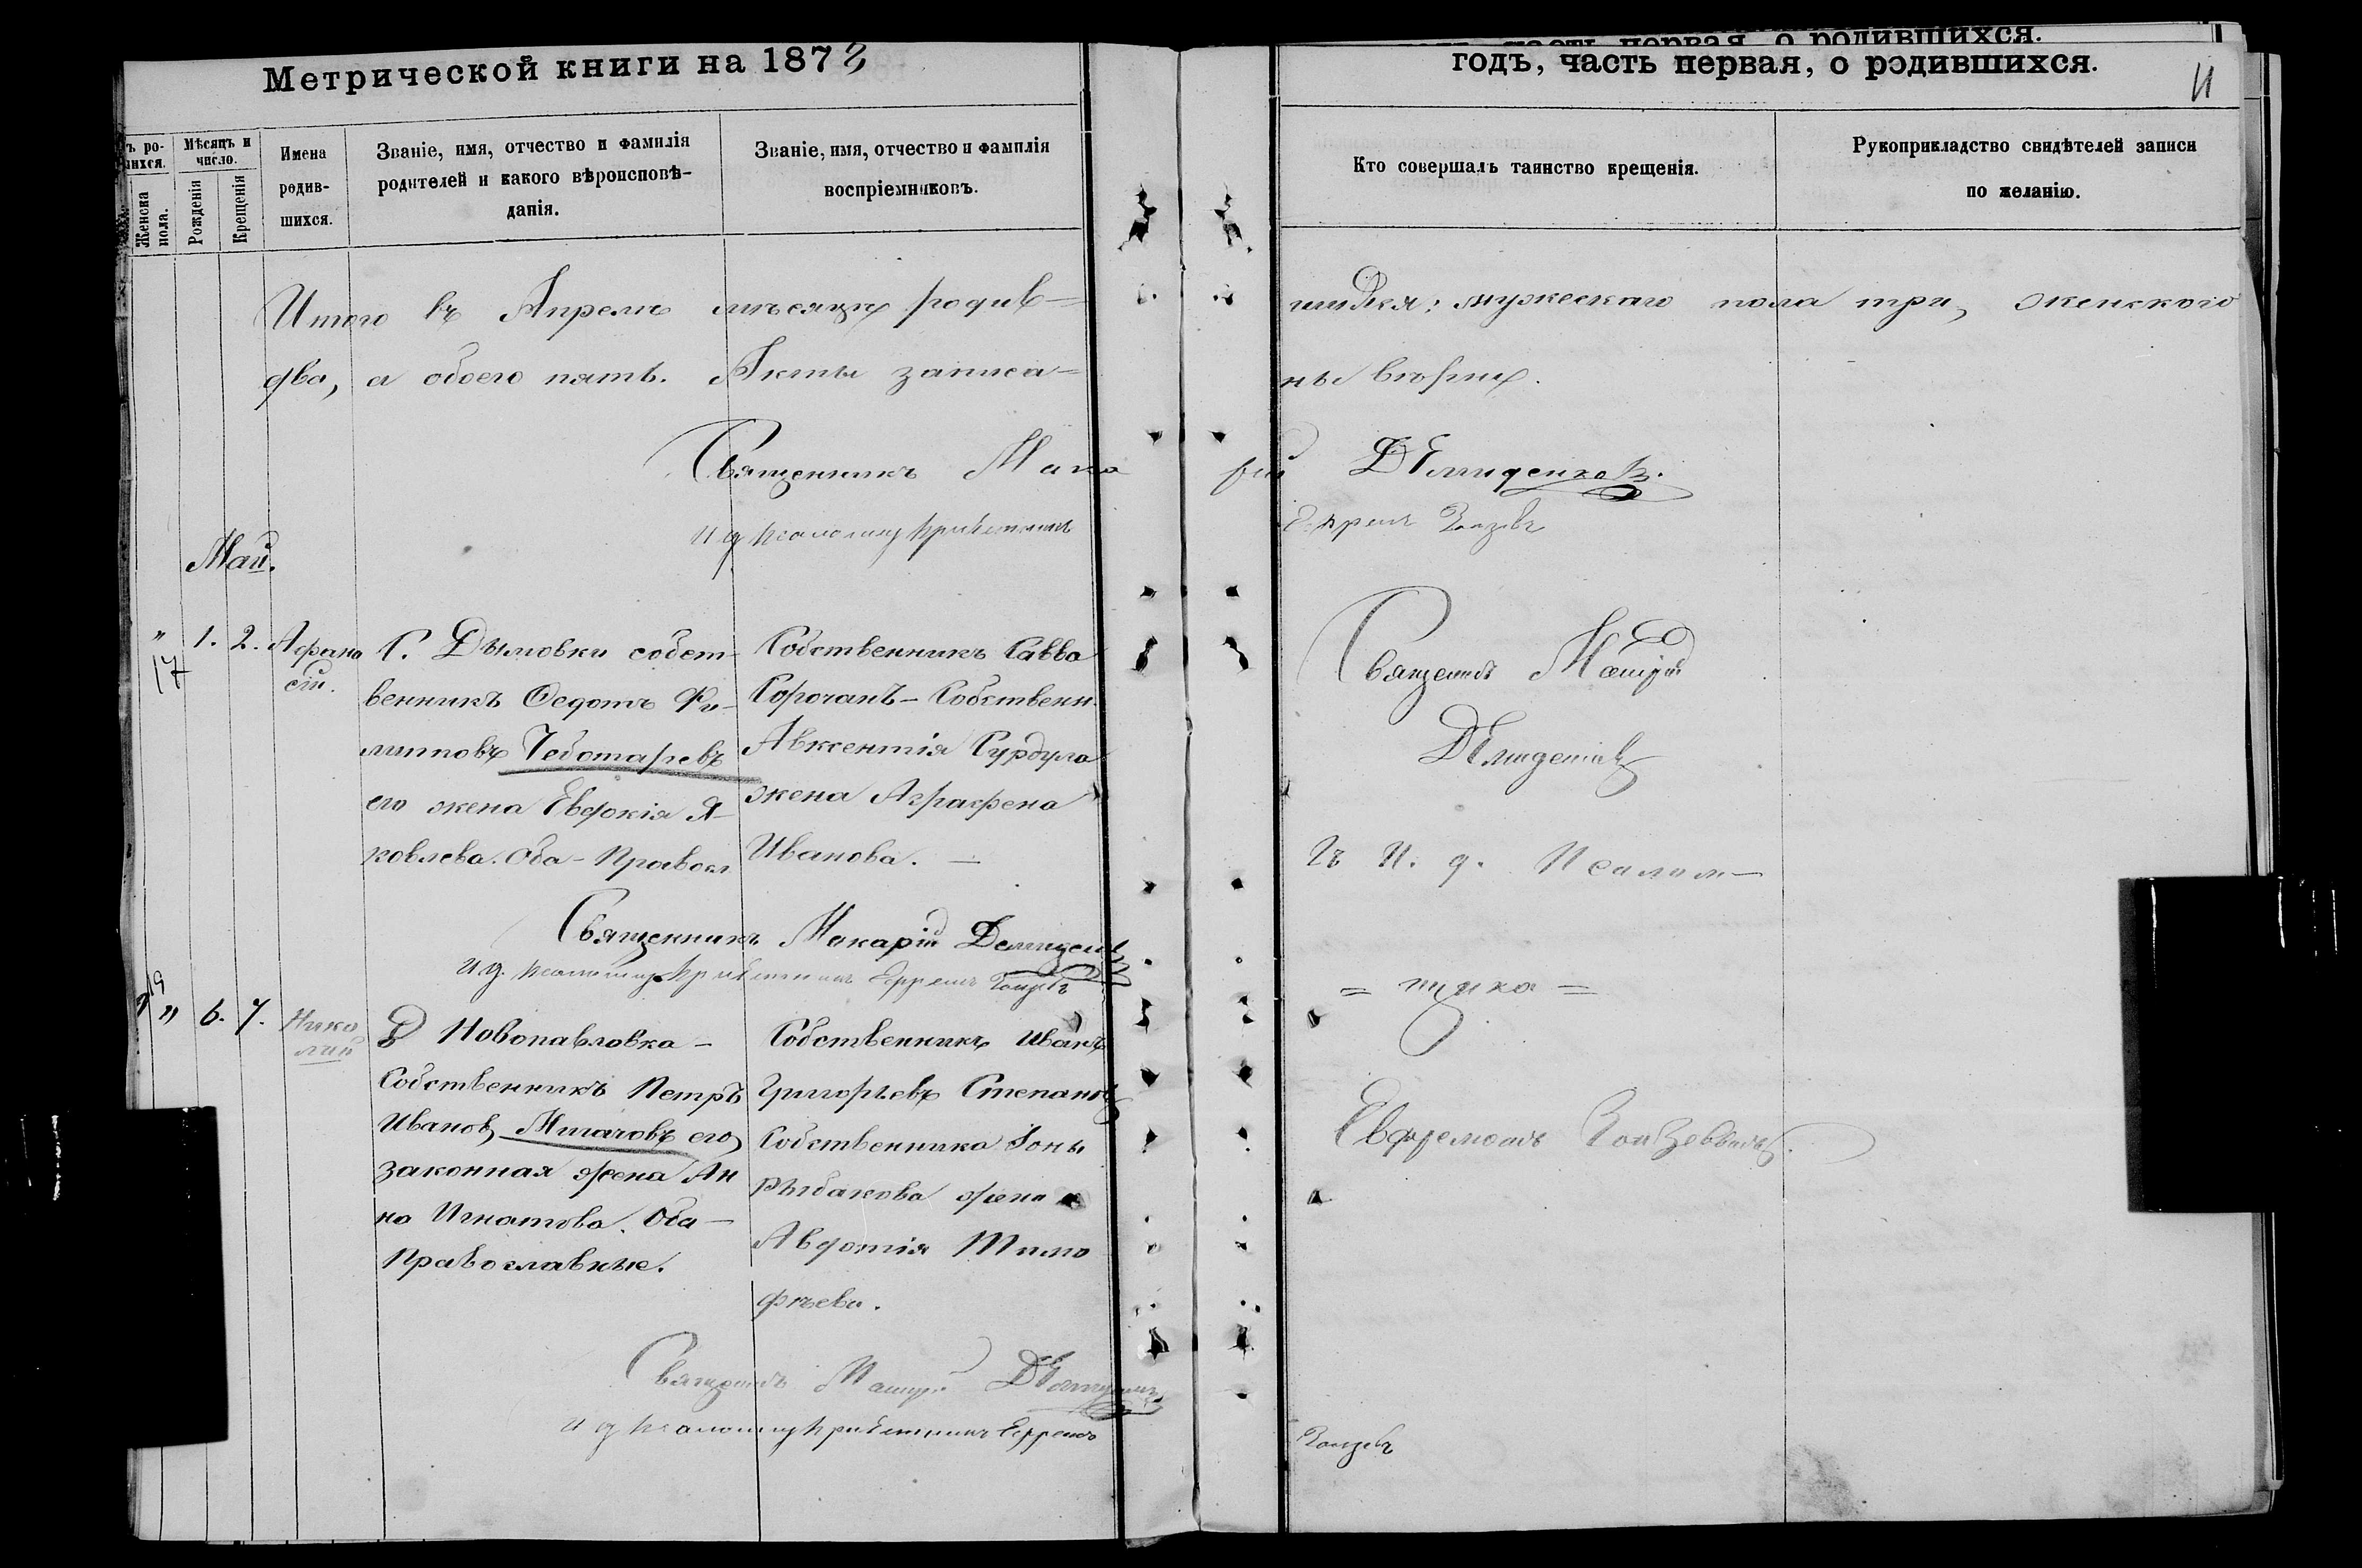 Метрической книги на 1873
годъ, часть первая, о родившихся.
годъ, часть первая, о родившихся.
11
Мѣсяцъ и число.
Женска пола.
Рожденія
Крещенія
Имена родив-
шихся.
Званіе, имя, отчество и фамилія
родителей и какого вѣроисповѣ-
данія.
Званіе, имя, отчество и фамилія
воспріемниковъ.
Кто совершалъ таинство крещенія.
Рукоприкладство свидѣтелей записи
по желанію.
Итого въ Апрелѣ мѣсяцѣ родив=
шихся: мужескаго пола три, женского
два, а обоего пять. Акты записа=
ны
Священникъ Мака рій Демиденков.
И д псаломщ
Май.
" 1. 2. Афана
сій.
17
С. Дымовки собст-
венникъ Федотъ Фи-
липповъ Чеботаревъ
его жена Евдокія Я-
ковлева. Оба - Правосл
Собственникъ Савва
Сорочанъ - Собственн.
Авксентія Сурдула
жена Аграфена
Иванова. —
Священникъ
Макарій
Демиденков
Съ И. д. Псалом—
= щика =
Евфремомъ
Священникъ Макарій Демиденк
И д. псаломщ Ефремъ
19
" 6. 7. Нико
лай
Д Новопавловка —
Собственникъ Петръ
Иванов Мигачовъ его
законная жена Ан
на Игнатова. Оба —
Православные.
Собственникъ Иванъ
Григорьевъ Степанов
Собственника Іоны
Рыбакова жена
Авдотія Тимо
фѣева.
Священникъ Макарій
И д псаломщ Ефремъ